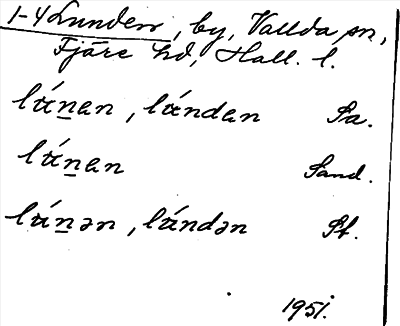 1-4 Lunden, by, Vallda sn,
Fjäre hd, Hall. l.
lú̵n̲an, lú̵ndan Sa.
lú̵n̲an Sand.
lú̵n̲ən, lú̵ndən St.
1951.